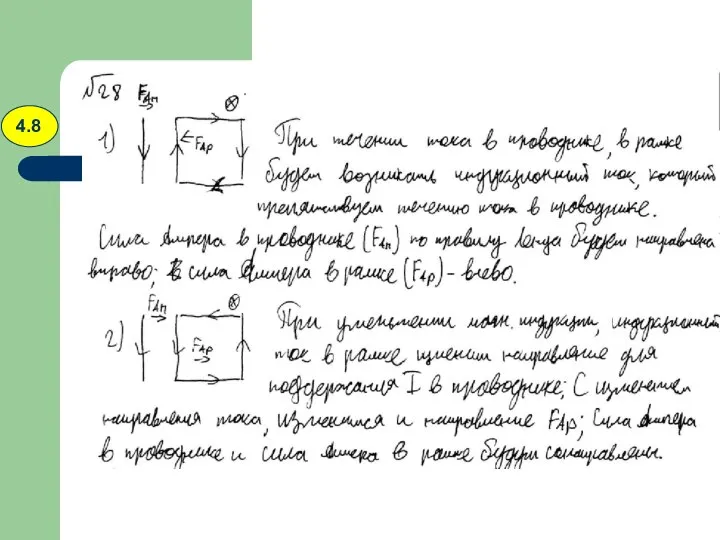 4.8
№28
FАп
1)
FАр
При течении тока в проводнике, в рамке
будет возникать индукционный ток, который
препятствует течению тока в проводнике.
Сила Ампера в проводнике (FАп) по правилу Ленца будет направлена
вправо; сила Ампера в рамке (FАр) – влево.
FАп
2)
FАр
При уменьшении магн. индукции, индукционный
ток в рамке изменит направление для
поддержания I в проводнике; С изменением
направления тока, изменится и направление FАр; Сила Ампера
в проводнике и сила Ампера в рамке будут сонаправлены.